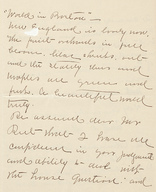 "World in Boston" —
New England is lovely now.
The fruit orchards in full
bloom. lilac buds, out
and the stately elms and
maples are green and
fresh. A beautiful world
truly.
Be assured dear Mr
that I have all
confidence in your judgment
and ability to deal with
the house question: and